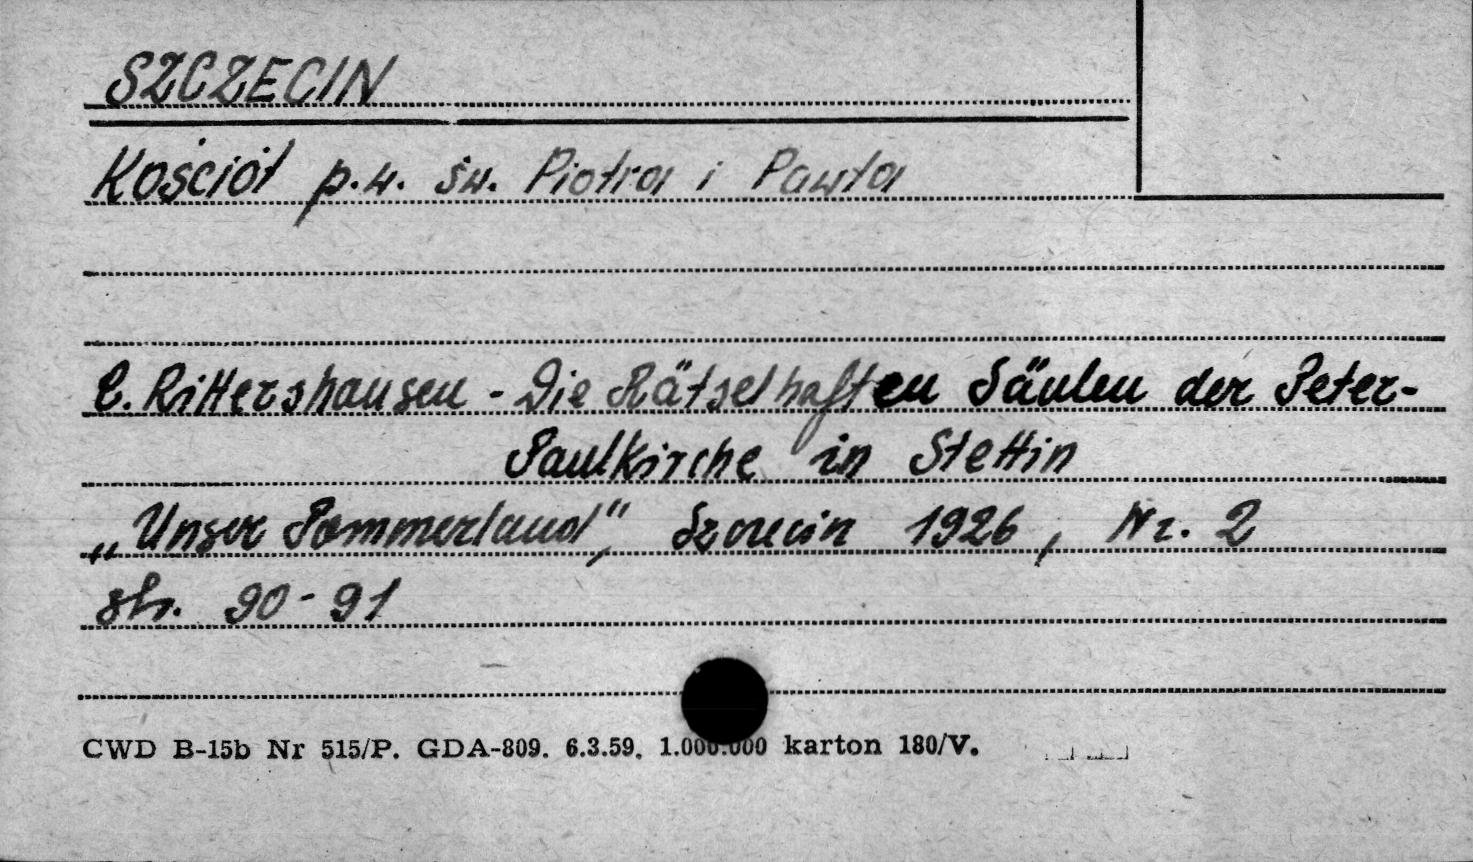 SZCZECIN
Kościół p.w. św. Piotra i Pawła
C. Rittershausen - Die Rätselhaften Säulen der Peter-
Paulkirche in Stettin
„Unser Pommerland", Szczecin 1926, Nr. 2
str. 90-91
CWD B-15b Nr 515/P. GDA-809. 6.3.59. 1.000.000 karton 180/V.